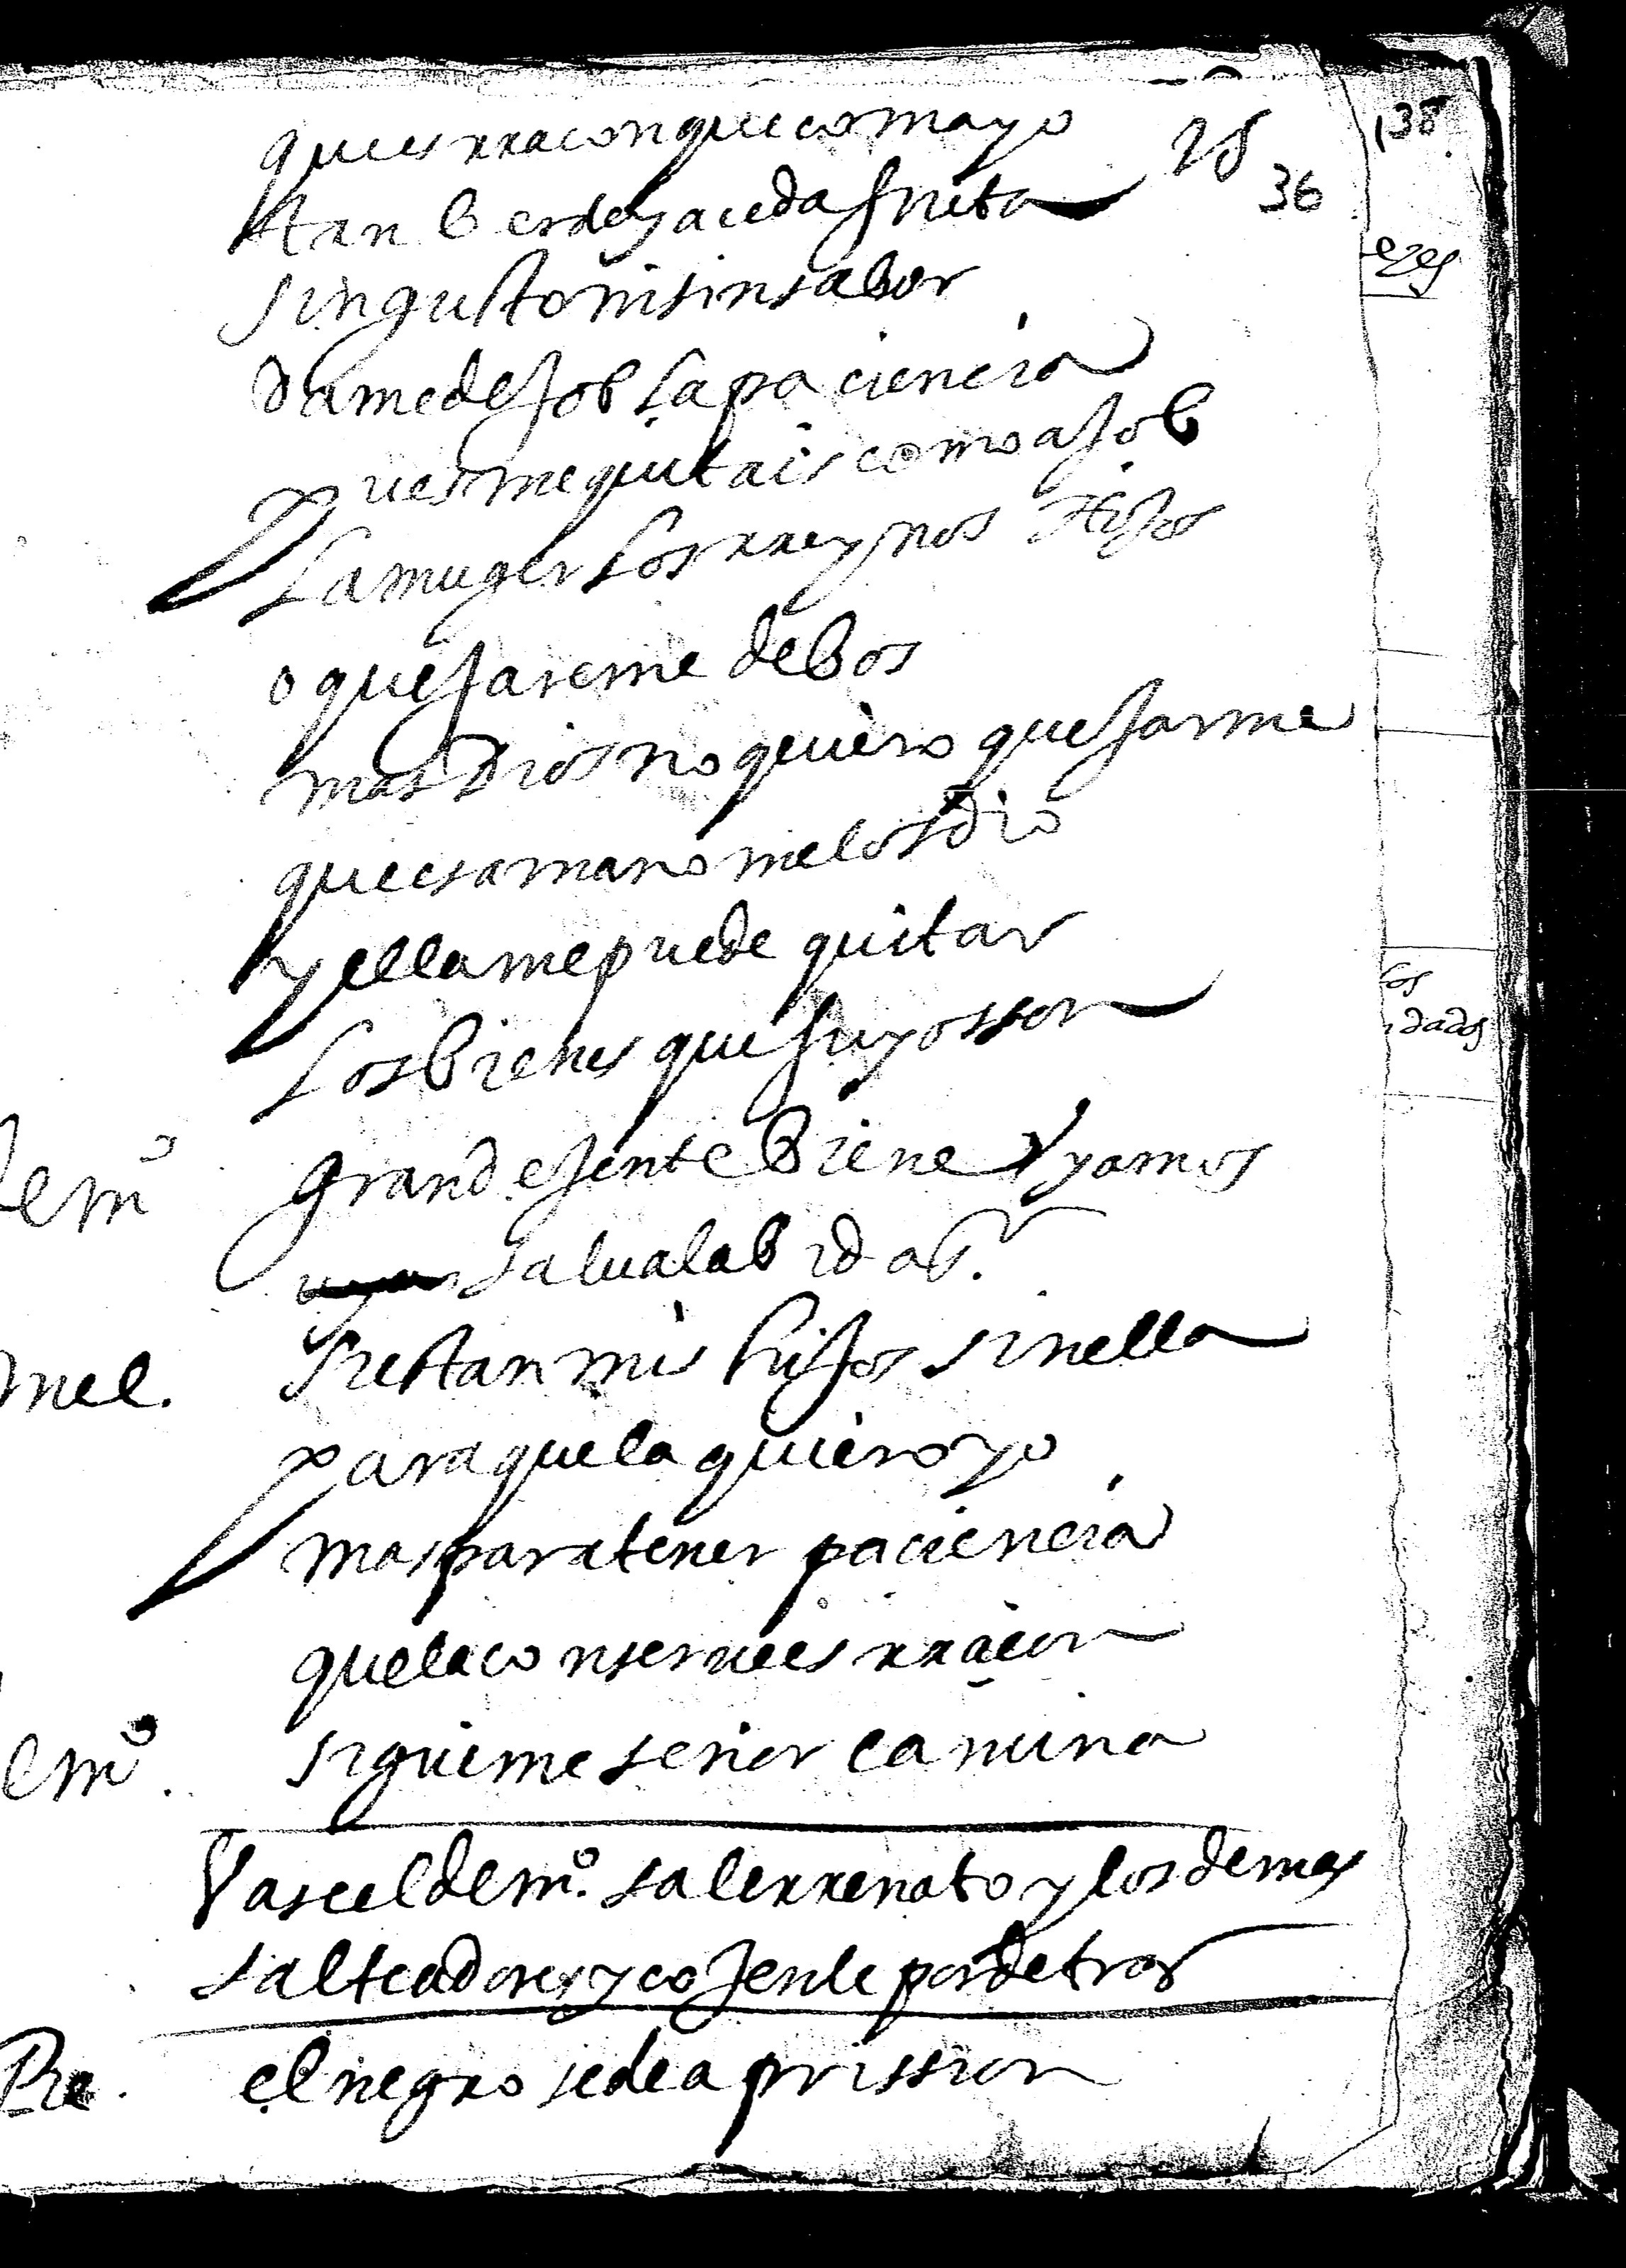 138
28
36
ques rraconque coma yo
tan berde y aceda fruta
sin gusto ni sin sabor
dame de Job la paciencia
pues me quitais como a Job
la muger los rreynos hijos
o quejareme de bos
mas Dios no quiero quejarme
que esa mano me los dio
y ella me puede quitar
los bienes que suyos son
dem.º grande jente biene y vamos
salua la bida s.r
mel. si estan mis hijos sin ella
para que la quiero yo
mas para tener paciencia
que la conserue es rraçon
dem.º sigueme señor camina
Vase el dem.º sale rrenato y los demas
salteadores y cojenle por detras
Re. el negro se de a prission
ezes
los
dados